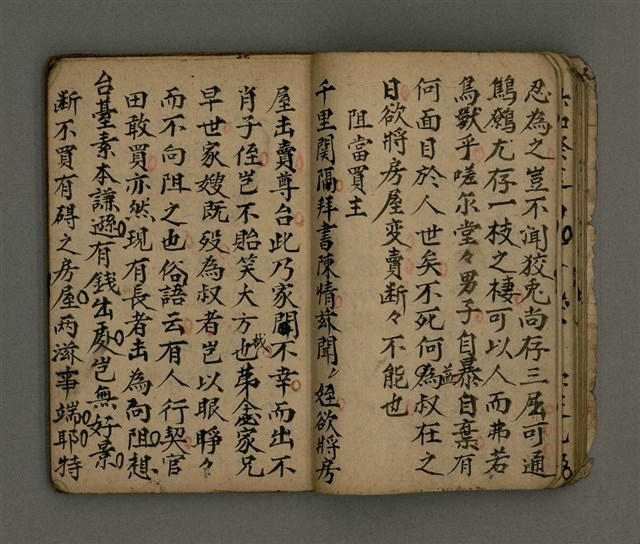 忍為之豈不闻狡兎尚存三屈可通
鷦鷯尤存一枝之棲可以人而弗若
鳥獸乎嗟尔堂々男子自暴自棄有
何面目於人世矣不死何為叔在之
益
日欲將房屋变賣断々不能也
阻當買主
千里関隔拜書陳情兹聞姪欲將房
屋出賣尊台此乃家門不幸而出不
肖子侄豈不貽笑大方也苐念家兄
哉
早世家嫂既殁為叔者豈以眼睜々
而不向阻之也俗語云有人行契官
田敢買亦然現有長者出為向阻想
台臺素本謙遜有錢出處岂無好景
断不買有碍之房屋两滋事端耶特